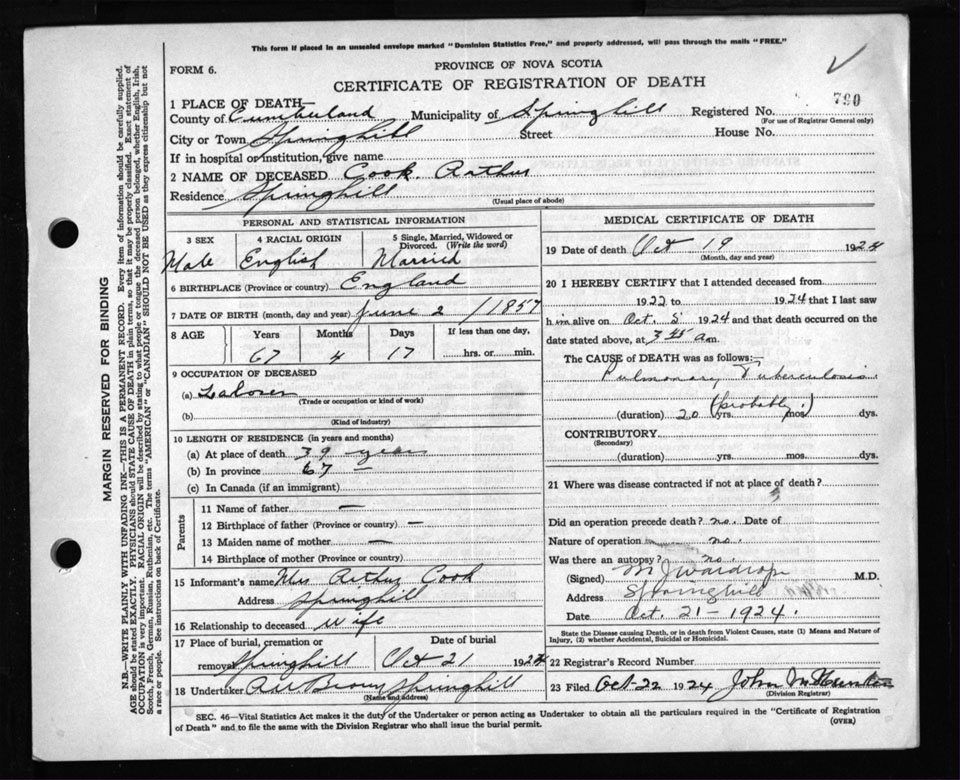 This form if placed in an unsealed envelope marked "Dominion Statistics Free," and properly addressed, will pass through the mails "FREE."
PROVINCE OF NOVA SCOTIA
FORM 6.
CERTIFICATE OF REGISTRATION OF DEATH
1 PLACE OF DEATH—
County of Cumberland Municipality of Springhill Registered No. 790
(For use of Registrar General only)
City or Town Springhill Street House No.
If in hospital or institution, give name
2 NAME OF DECEASED Cook Arthur
Residence Springhill
(Usual place of abode)
PERSONAL AND STATISTICAL INFORMATION
3 SEX 4 RACIAL ORIGIN 5 Single, Married, Widowed or Divorced. (Write the word)
Male English Married
6 BIRTHPLACE (Province or country) England
7 DATE OF BIRTH (month, day and year) June 2 / 1857
8 AGE Years Months Days If less than one day,
67 4 17 hrs. or min.
9 OCCUPATION OF DECEASED
(a) Laborer
(Trade or occupation or kind of work)
(b)
(Kind of industry)
10 LENGTH OF RESIDENCE (in years and months)
(a) At place of death 39 years
(b) In province 67 —
(c) In Canada (if an immigrant)
Parents
11 Name of father —
12 Birthplace of father (Province or country) —
13 Maiden name of mother —
14 Birthplace of mother (Province or country)
15 Informant's name Mrs Arthur Cook
Address Springhill
16 Relationship to deceased Wife
17 Place of burial, cremation or Date of burial
removal Springhill Oct 21 1924
18 Undertaker Springhill
(Name and address)
MEDICAL CERTIFICATE OF DEATH
19 Date of death Oct 19 1924
(Month, day and year)
20 I HEREBY CERTIFY that I attended deceased from
1922 to 1924 that I last saw
him alive on Oct. 5 1924 and that death occurred on the
date stated above, at 3 45 a.m.
The CAUSE of DEATH was as follows:—
Pulmonary Tuberculosis
(probably)
(duration) 20 yrs. mos. dys.
CONTRIBUTORY
(Secondary)
(duration) yrs. mos. dys.
21 Where was disease contracted if not at place of death?
Did an operation precede death? no. Date of
Nature of operation no.
Was there an autopsy? no
(Signed) M J Wardrope M.D.
Address Springhill
Date Oct. 21 – 1924.
State the Disease causing Death, or in death from Violent Causes, state (1) Means and Nature of
Injury, (2) whether Accidental, Suicidal or Homicidal.
22 Registrar's Record Number
23 Filed Oct-22 1924 John
(Division Registrar)
SEC. 46—Vital Statistics Act makes it the duty of the Undertaker or person acting as Undertaker to obtain all the particulars required in the "Certificate of Registration
of Death" and to file the same with the Division Registrar who shall issue the burial permit.
(OVER)
MARGIN RESERVED FOR BINDING
N.B.—WRITE PLAINLY WITH UNFADING INK—THIS IS A PERMANENT RECORD. Every item of information should be carefully supplied.
AGE should be stated EXACTLY. PHYSICIANS should STATE CAUSE OF DEATH in plain terms, so that it may be properly classified. Exact statement of
OCCUPATION is very important. RACIAL ORIGIN will be described by stating to what people or tongue the deceased person belonged, whether English, Irish,
Scotch, French, German, Russian, Ruthenian, etc. The terms "AMERICAN" or "CANADIAN" SHOULD NOT BE USED as they express citizenship but not
a race or people. See instructions on back of Certificate.